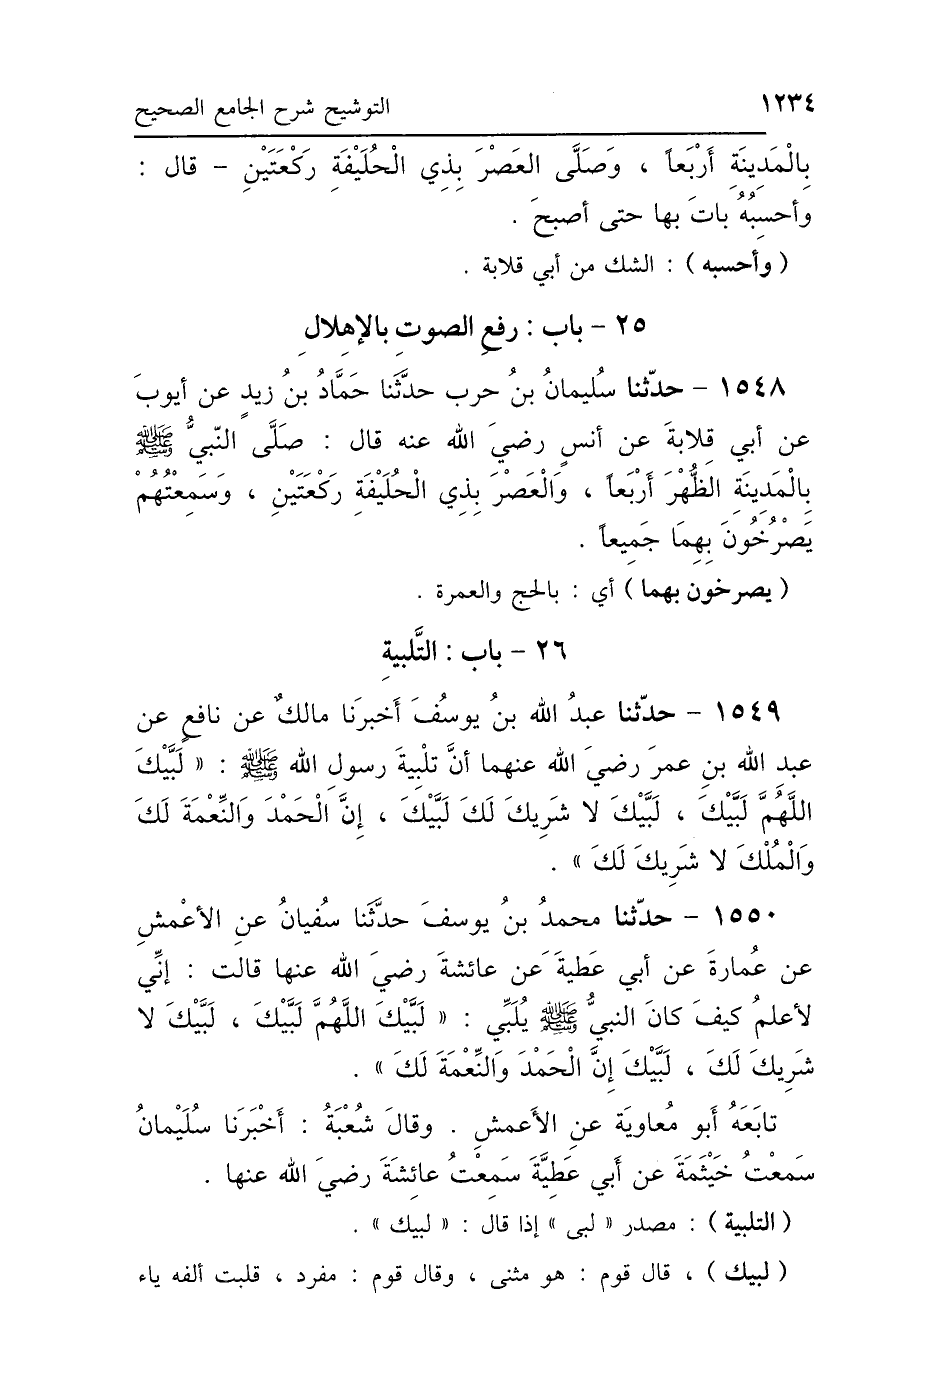 ١٢٣٤ التوشيح شرح الجامع الصحيح
بِالْمَدِينَةِ أَرْبَعاً ، وَصَلَّى العَصْرَ بِذِي الْحُلَيْفَةِ رَكْعَتَيْنِ – قال :
وأحسِبُهُ باتَ بها حتى أصبحَ .
( وأحسبه ) : الشك من أبي قلابة .
٢٥ – باب : رفعِ الصوتِ بالإهلالِ
١٥٤٨ – حدّثنا سُليمانُ بنُ حرب حدَّثَنا حَمَّادُ بنُ زيدٍ عن أيوبَ
عن أبي قِلابةَ عن أنسٍ رضيَ الله عنه قال : صَلَّى النّبيُّ ﷺ
بِالْمَدِينَةِ الظُّهْرَ أَرْبَعاً ، وَالْعَصْرَ بِذِي الْحُلَيْفَةِ رَكْعَتَيْنِ ، وَسَمِعْتُهُمْ
يَصْرُخُونَ بِهِمَا جَمِيعاً .
( يصرخون بهما ) أي : بالحج والعمرة .
٢٦ – باب : التَّلبيةِ
١٥٤٩ – حدّثنا عبدُ الله بنُ يوسُفَ أخبرَنا مالكٌ عن نافعٍ عن
عبدِ الله بنِ عمرَ رضيَ الله عنهما أنَّ تلْبِيةَ رسولِ الله ﷺ : « لَبَّيْكَ
اللَّهُمَّ لَبَّيْكَ ، لَبَّيْكَ لا شَرِيكَ لَكَ لَبَّيْكَ ، إِنَّ الْحَمْدَ وَالنِّعْمَةَ لَكَ
وَالْمُلْكَ لا شَرِيكَ لَكَ » .
١٥٥٠ – حدّثنا محمدُ بنُ يوسفَ حدَّثَنا سُفيانُ عنِ الأعْمشِ
عن عُمارةَ عن أبي عَطيةَ عن عائشةَ رضيَ الله عنها قالت : إنِّي
لأعلمُ كيفَ كانَ النبيُّ ﷺ يُلَبِّي : « لَبَّيْكَ اللَّهُمَّ لَبَّيْكَ ، لَبَّيْكَ لا
شَرِيكَ لَكَ ، لَبَّيْكَ إِنَّ الْحَمْدَ وَالنِّعْمَةَ لَكَ » .
تابَعَهُ أبو مُعاويَة عنِ الأَعمشِ . وقالَ شُعْبَةُ : أَخْبَرَنا سُلَيْمانُ
سَمعْتُ خَيْثَمَةَ عن أَبي عَطِيَّةَ سَمِعْتُ عائِشَةَ رضيَ الله عنها .
( التلبية ) : مصدر « لبى » إذا قال : « لبيك » .
( لبيك ) ، قال قوم : هو مثنى ، وقال قوم : مفرد ، قلبت ألفه ياء